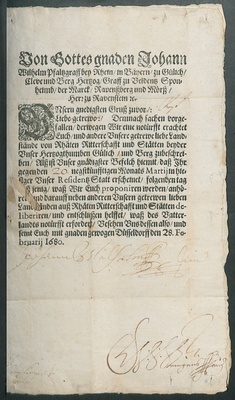 Von Gottes gnaden Johann
Wilhelm Pfaltzgraff bey Rhein / in Bäyern / zu Gülich /
Cleve und Berg Hertzog / Graff zu Veldentz Spon-
heimb / der Marck / Ravenßberg und Mörß /
Herr zu Ravenstein ꝛc.
Unsern gnedigsten Gruß zuvor /:
Liebe getrewe: Demnach sachen vorge-
fallen / derwegen Wir eine notürfft erachtet
Euch / und andere Unsere getrewe liebe Land-
stände von Rhäten Ritterschafft und Stätten beyder
Unser Hertzogthumben Gülich / und Berg zubeschrei-
ben / Alß ist Unser gnädigster Befelch hiemit daß Ihr
gegenden 20. negstkünfftigen Monats Martij in hie-
siger Unser Residentz Statt erscheinet / folgenden tag
waß Wir Euch proponiren werden / anhö-
ret / und darauff neben anderen Unseren getrewen lieben
Land Ständen auß Rhäten Ritterschafft und Stätten de-
liberiren / und entschliessen helffet / waß deß Vatter-
lands notürfft erfordert / Versehen Uns dessen also / und
seint Euch mit gnaden gewogen Düsseldorff den 28. Fe-
bruarij 1680.